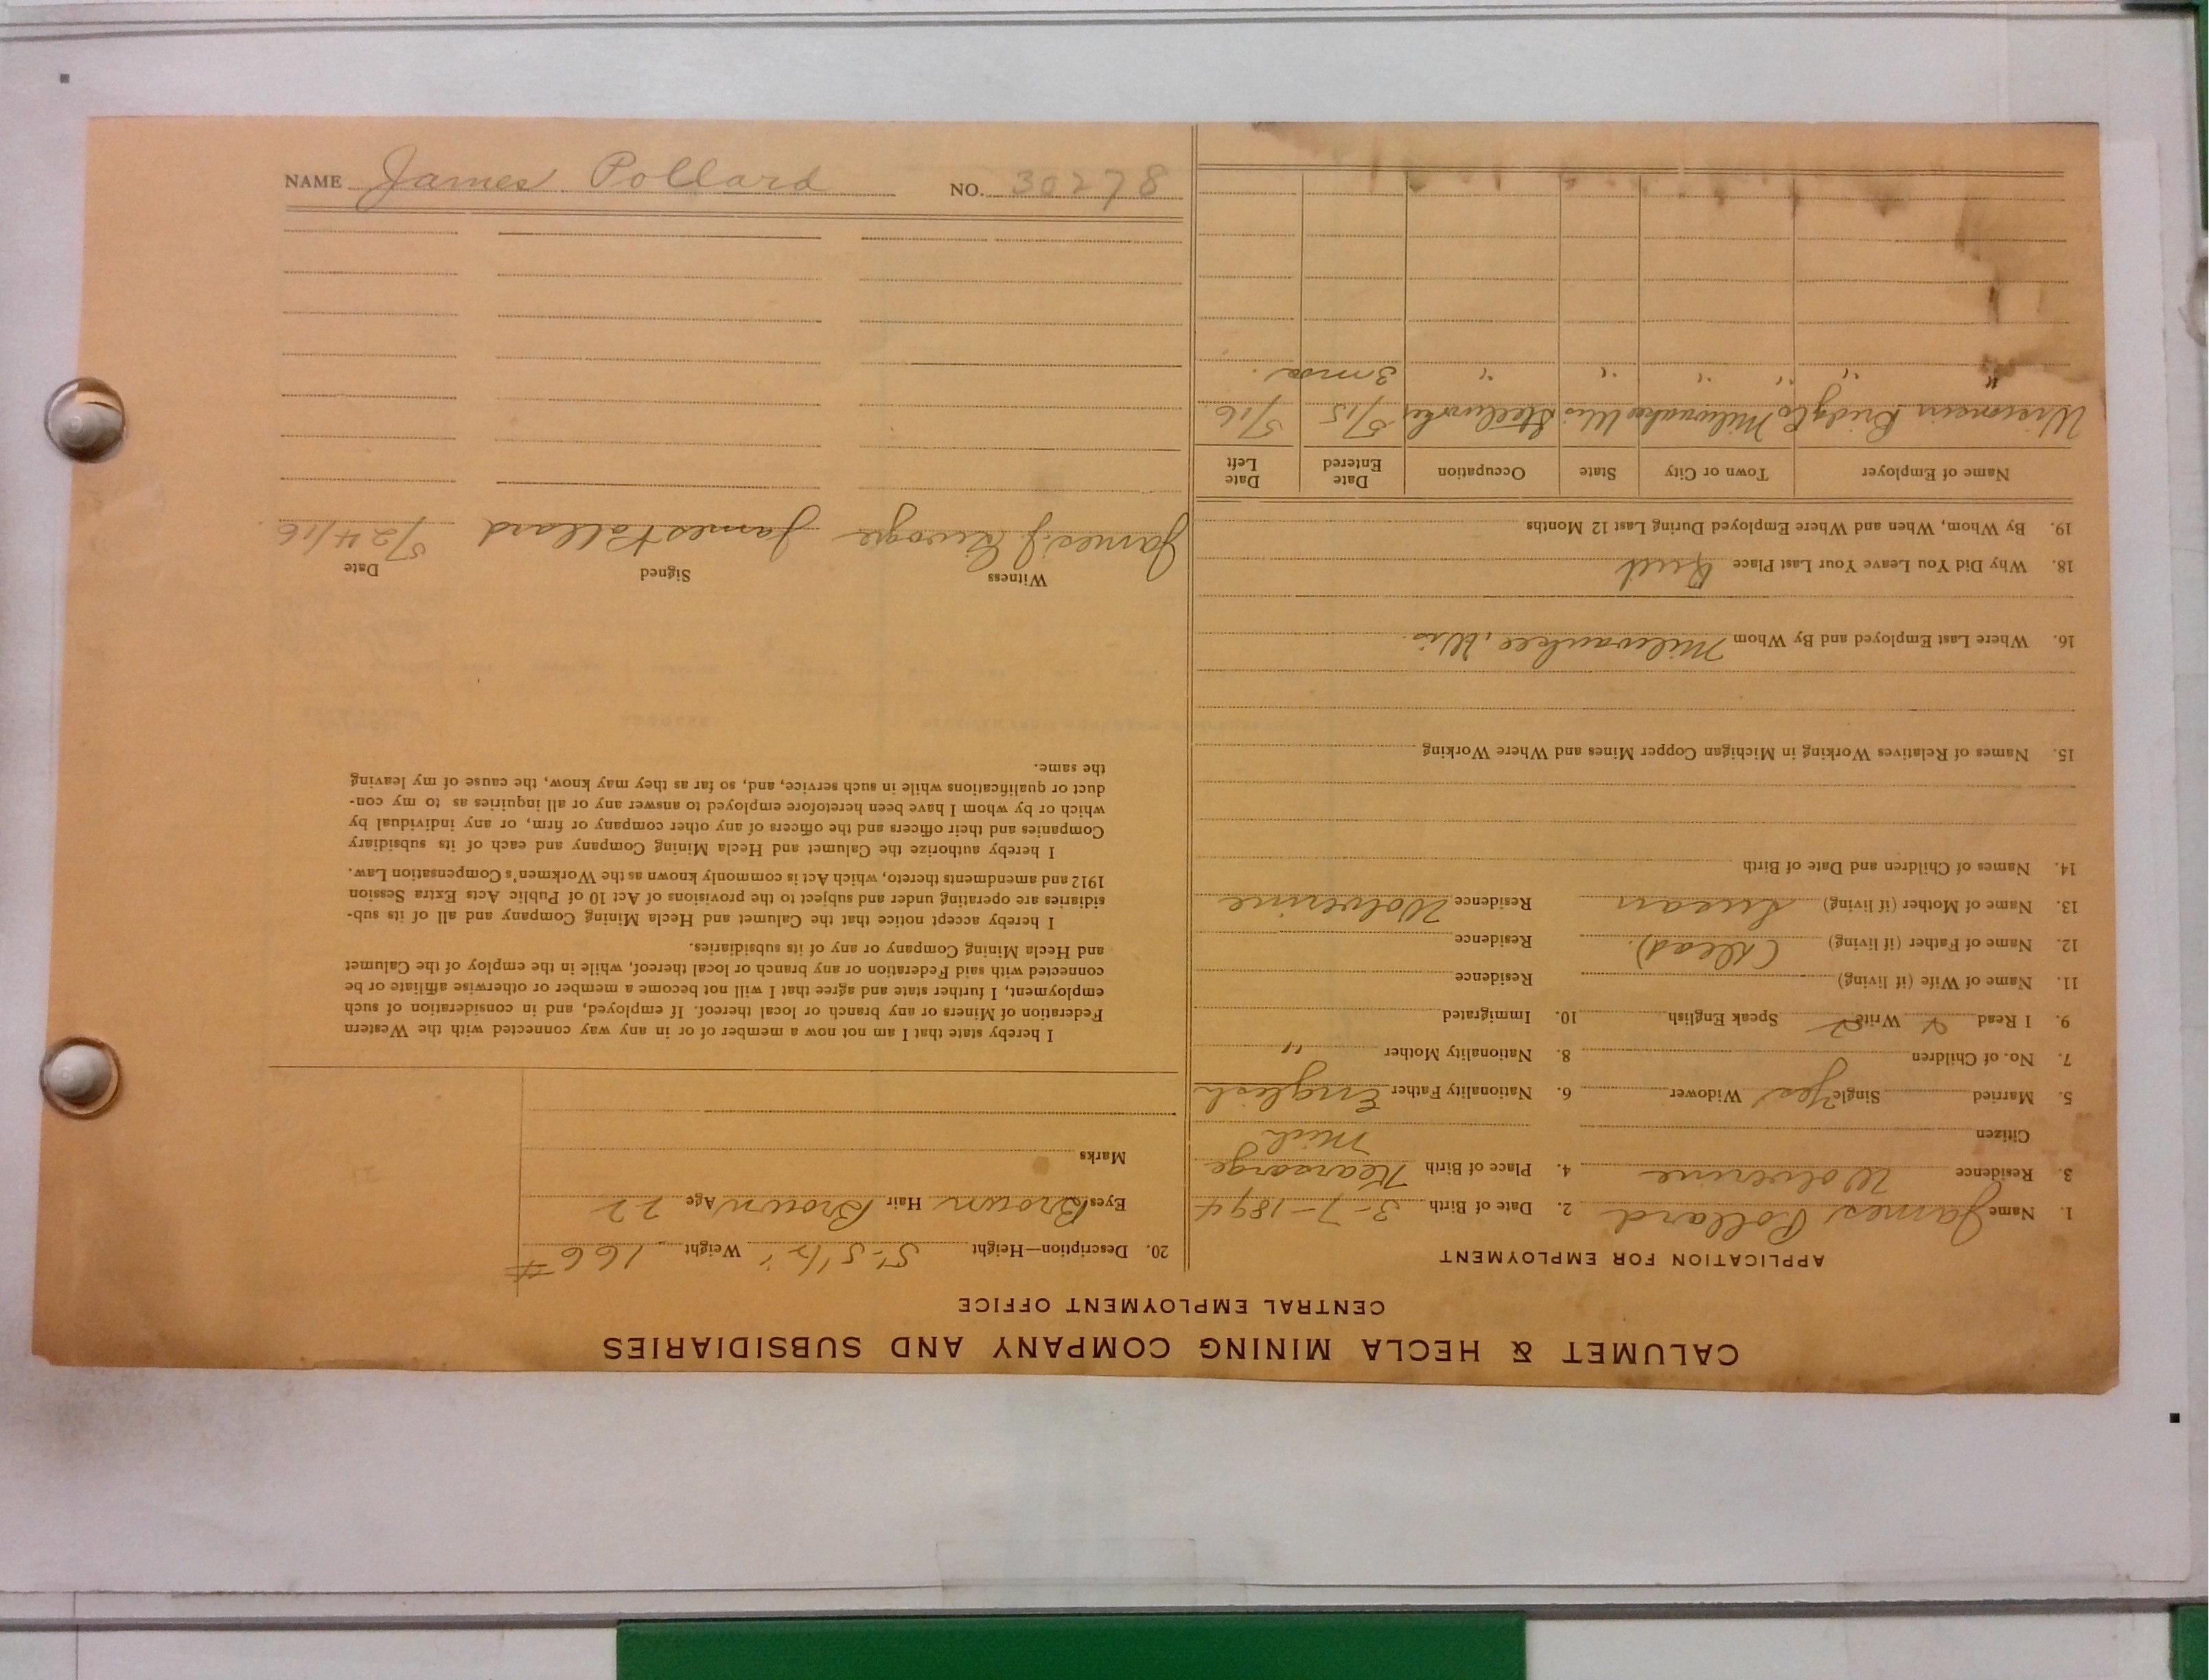 CALUMET & HECLA MINING COMPANY AND SUBSIDIARIES
CENTRAL EMPLOYMENT OFFICE
APPLICATION FOR EMPLOYMENT
1. Name James Pollard 2. Date of Birth 3-7-1894
3. Residence Wolverine 4. Place of Birth Kearsarge
Citizen Mich
5. Married Single Yes Widower 6. Nationality Father English
7. No. of Children 8. Nationality Mother "
9. I Read Write Speak English 10. Immigrated
11. Name of Wife (if living) Residence
12. Name of Father (if living) (Dead) Residence
13. Name of Mother (if living) Susan Residence Wolverine
14. Names of Children and Date of Birth
15. Names of Relatives Working in Michigan Copper Mines and Where Working
16. Where Last Employed and By Whom Milwaukee, Wis.
18. Why Did You Leave Your Last Place Quit
19. By Whom, When and Where Employed During Last 12 Months
Name of Employer Town or City State Occupation Date Entered Date Left
Wisconsin Bridge Co Milwaukee Wis Steelworker 5/15 5/16
" " " " " " 3 mos.
20. Description—Height 5'-5 1/2" Weight 166 #
Eyes Brown Hair Brown Age 22
Marks
I hereby state that I am not now a member of or in any way connected with the Western
Federation of Miners or any branch or local thereof. If employed, and in consideration of such
employment, I further state and agree that I will not become a member or otherwise affiliate or be
connected with said Federation or any branch or local thereof, while in the employ of the Calumet
and Hecla Mining Company or any of its subsidiaries.
I hereby accept notice that the Calumet and Hecla Mining Company and all of its sub-
sidiaries are operating under and subject to the provisions of Act 10 of Public Acts Extra Session
1912 and amendments thereto, which Act is commonly known as the Workmen's Compensation Law.
I hereby authorize the Calumet and Hecla Mining Company and each of its subsidiary
Companies and their officers and the officers of any other company or firm, or any individual by
which or by whom I have been heretofore employed to answer any or all inquiries as to my con-
duct or qualifications while in such service, and, so far as they may know, the cause of my leaving
the same.
Witness Signed Date
James J. James Pollard 5/24/16
NAME James Pollard NO. 30278